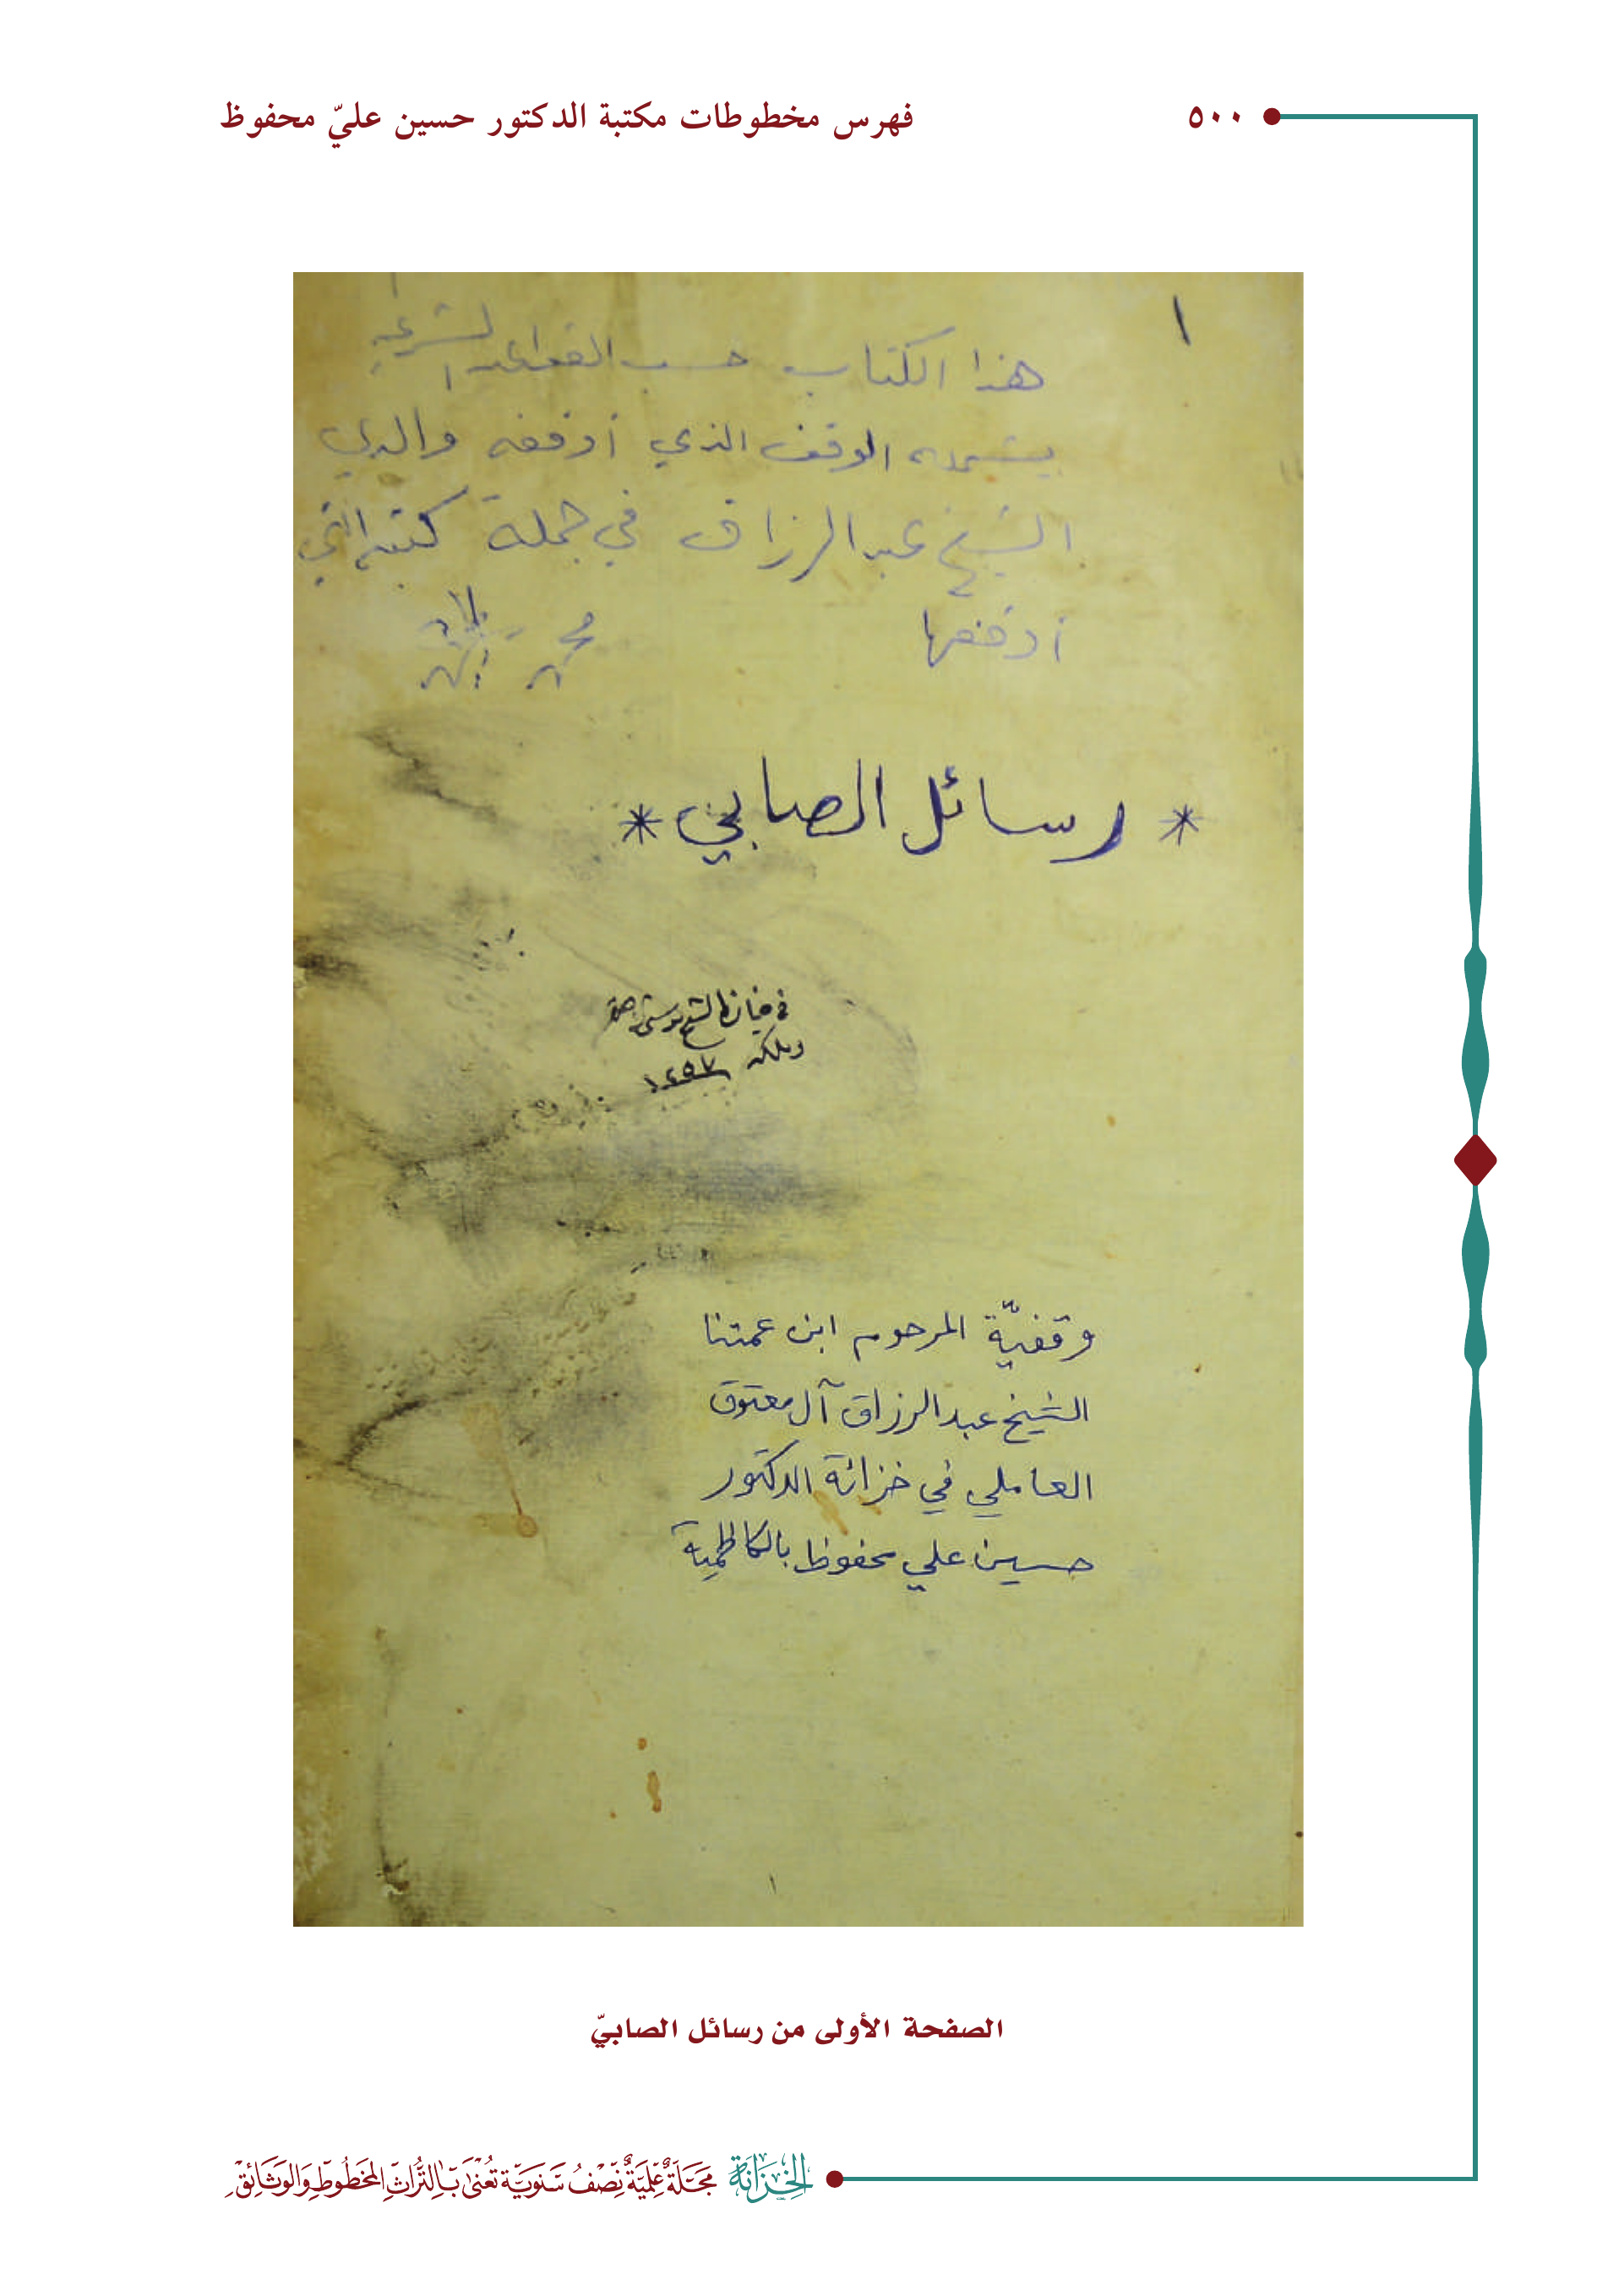 ٥٠٠
فهرس مخطوطات مكتبة الدكتور حسين عليّ محفوظ
١
هذا الكتاب حسب القواعد الشرعية
يشمله الوقف الذي أوقفه والدي
الشيخ عبد الرزاق في جملة كتبه التي
أوقفها
* رسائل الصابي *
في
وملكه ١٢٥٧
وقفيّة المرحوم ابن عمتنا
الشيخ عبد الرزاق آل معتوق
العاملي في خزانة الدكتور
حسين علي محفوظ بالكاظمية
١
الصفحة الأولى من رسائل الصابيّ
الخِزانَة مَجَلَّةٌ عِلْمِيَّةٌ نِصْفُ سَنَوِيَّة تُعْنَى بِالتُّرَاثِ المَخطُوطِ وَالوَثَائِقِ